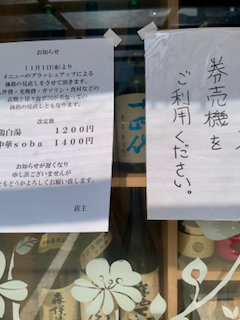 お知らせ
11月1日(水)より
メニューのブラッシュアップによる
価格の見直しをさせて頂きます。
人件費・光熱費・ガソリン・食材などの
価格の見直しともなります。
改定後
鶏白湯 1200円
中華soba 1400円
お知らせが遅くなり
申し訳ございませんが
どうかよろしくお願い致します。
店主
券売機を
ご利用ください。